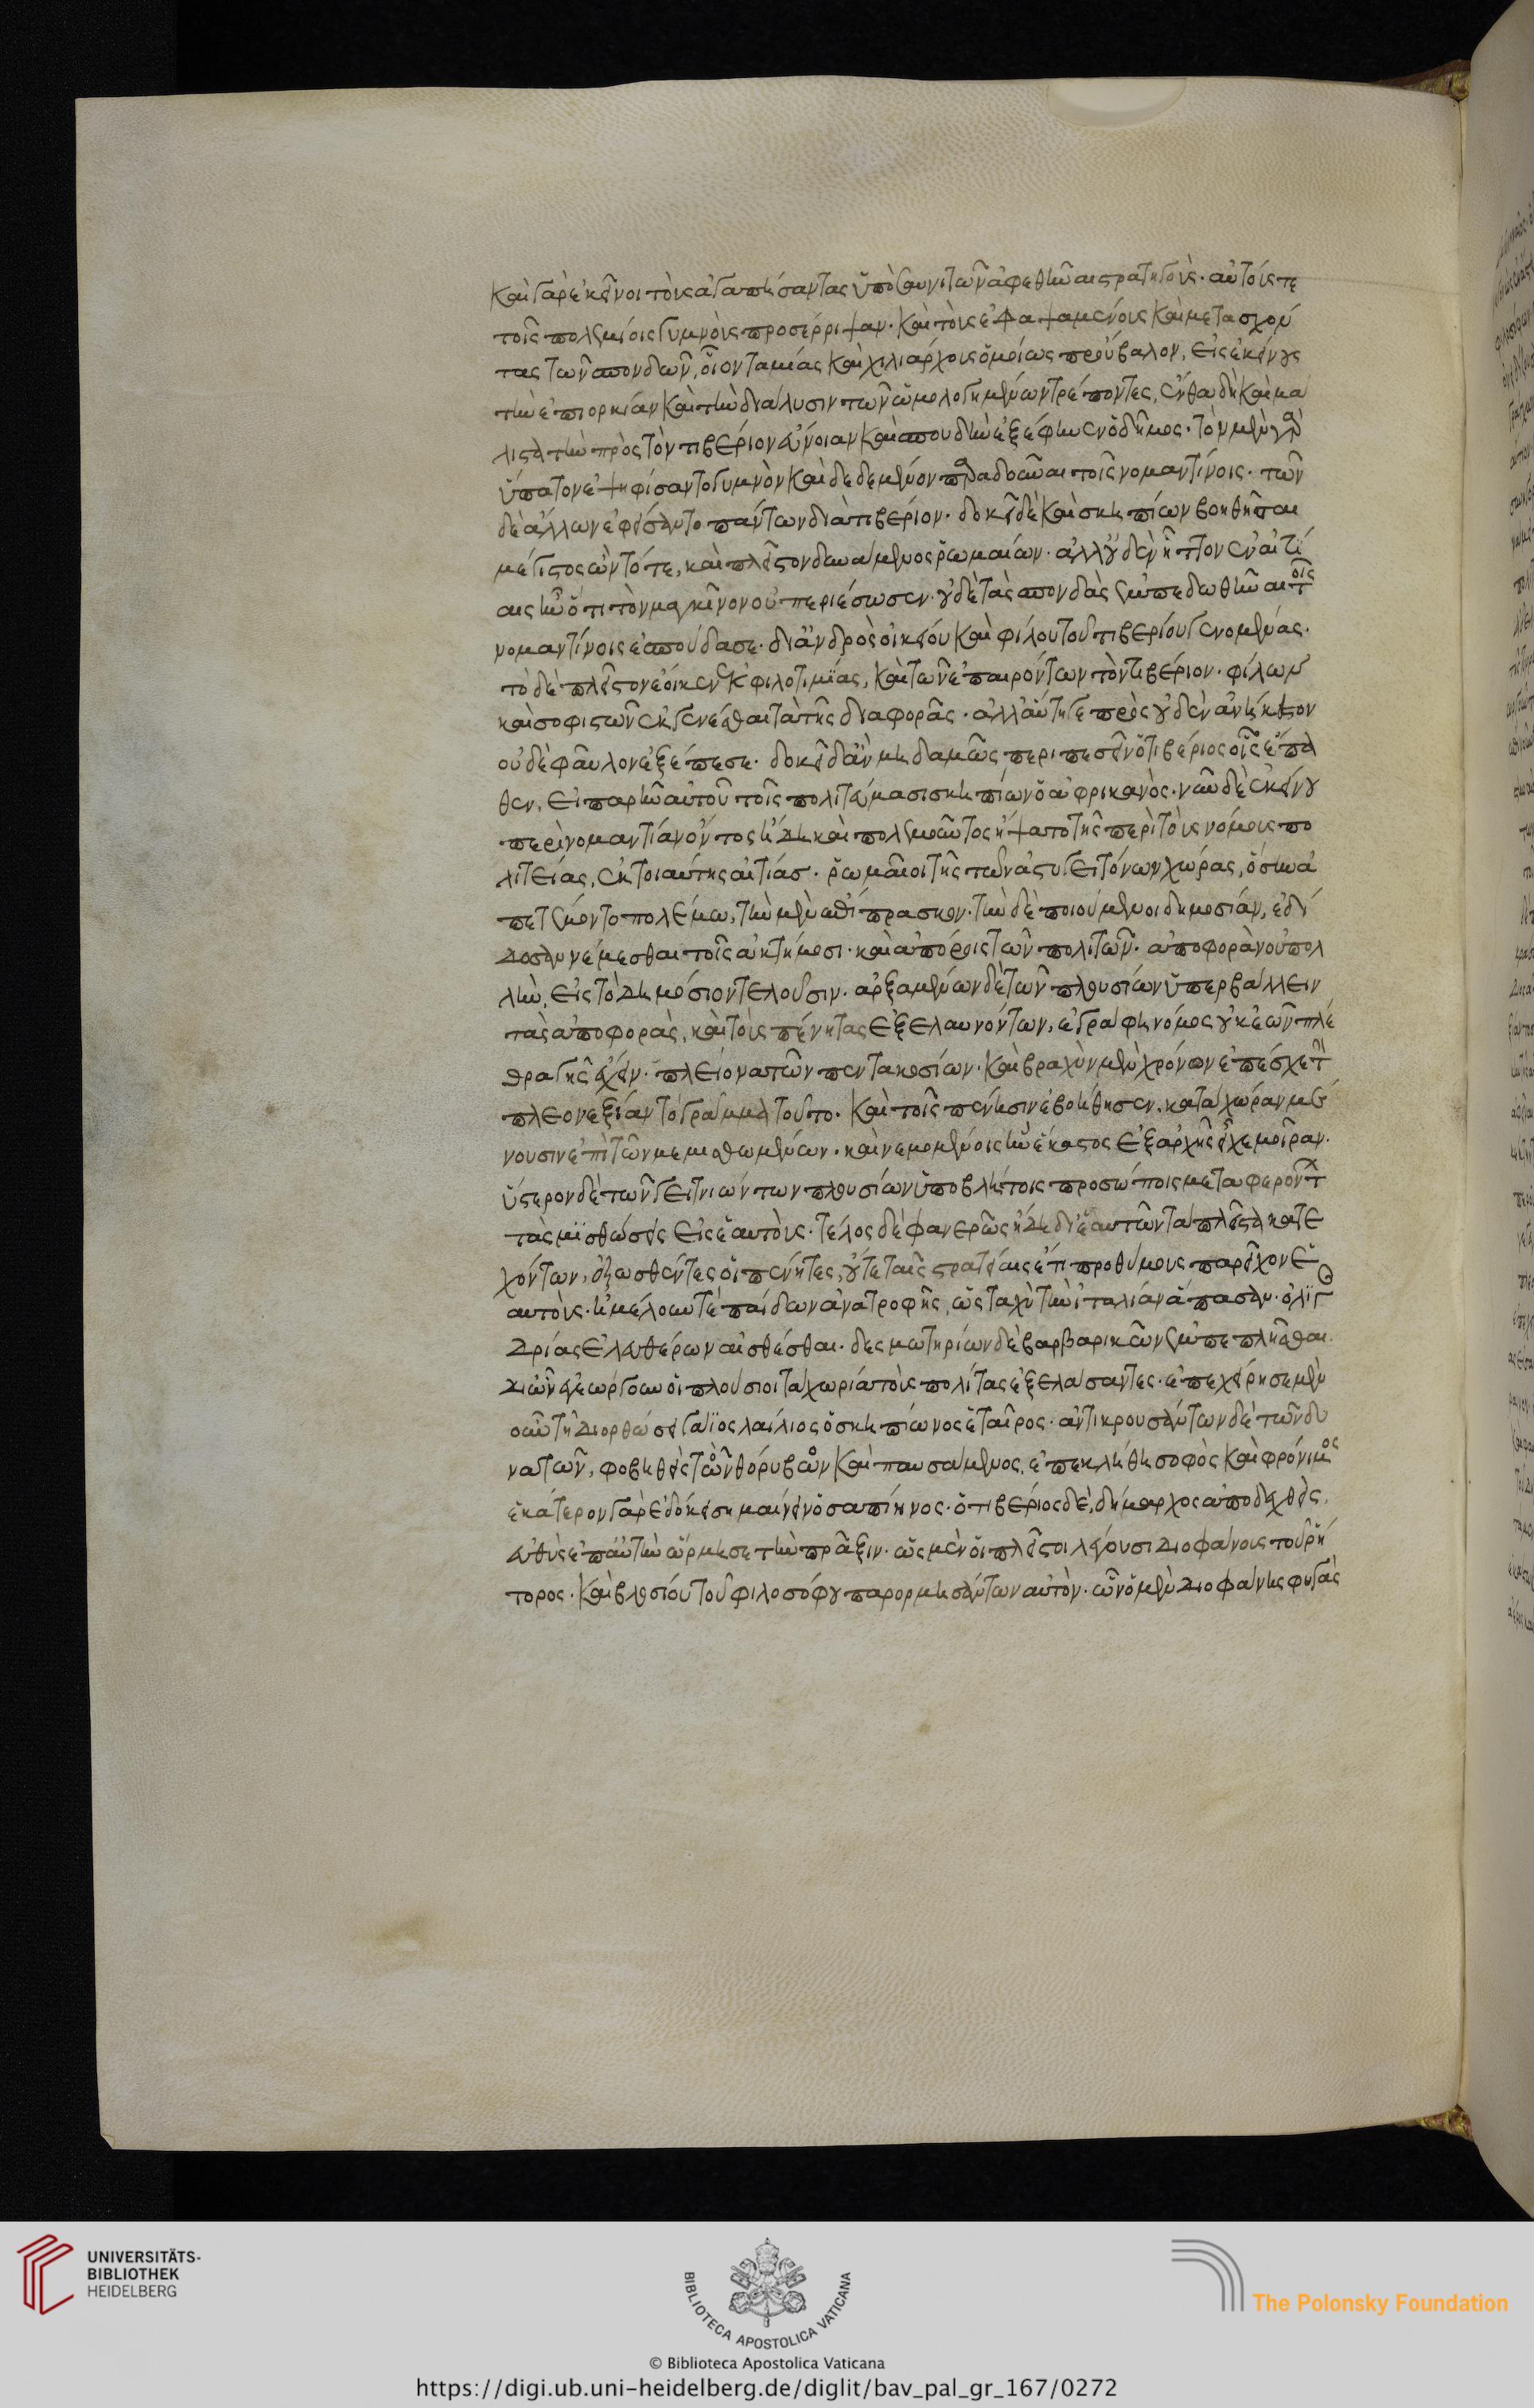 καὶ γὰρ ἐκεῖνοι τοὺς ἀγαπήσαντας ὑπὸ σαυνιτῶν ἀφεθῆναι στρατηγοὺς· αὐτούς τε
τοῖς πολεμίοις γυμνοὺς προσέρριψαν· καὶ τοὺς ἐφαψαμένους καὶ μετασχόν
τας τῶν σπονδῶν, οἷον ταμίας καὶ χιλιάρχους ὁμοίως προύβαλον, εἰς ἐκείνους
τὴν ἐπιορκίαν καὶ τὴν διάλυσιν τῶν ὡμολογημένων τρέποντες, ἔνθα δὴ καὶ μά
λιστα τὴν πρὸς τὸν τιβέριον εὔνοιαν καὶ σπουδὴν ἐξέφηνεν ὁ δῆμος· τὸν μὲν γὰρ
ὕπατον ἐψηφίσαντο γυμνὸν καὶ δεδεμένον παραδοῦναι τοῖς νομαντίνοις· τῶν
δὲ ἄλλων ἐφείσαντο πάντων διὰ τιβέριον· δοκεῖ δὲ καὶ σκηπίων βοηθῆσαι
μέγιστος ὢν τότε, καὶ πλεῖστον δυνάμενος ῥωμαίων· ἀλλ' οὐδὲν ἧττον ἐν αἰτί
αις ἦν ὅτι τὸν μαγκῖνον οὐ περιέσωσεν· οὐδὲ τὰς σπονδὰς ἐμπεδωθῆναι τοῖς
νομαντίνοις ἐσπούδασε· δι' ἀνδρὸς οἰκείου καὶ φίλου τοῦ τιβερίου γενομένας·
τὸ δὲ πλεῖστον ἔοικεν ἐκ φιλοτιμίας, καὶ τῶν ἐπαιρόντων τὸν τιβέριον· φίλων
καὶ σοφιστῶν ἐκγενέσθαι τὰ τῆς διαφορᾶς· ἀλλ' αὕτη γε πρὸς οὐδὲν ἀνήκεστον
οὐδὲ φαῦλον ἐξέπεσε· δοκεῖ δ' ἂν μηδαμῶς περιπεσεῖν ὁ τιβέριος οἷς ἔπα
θεν, εἰ παρῆν αὐτοῦ τοῖς πολιτεύμασι σκηπίων ὁ ἀφρικανὸς· νῦν δὲ ἐκείνου
περὶ νομαντίαν ὄντος ἤδη καὶ πολεμοῦντος ἥψατο τῆς περὶ τοὺς νόμους πο
λιτείας, ἐκ τοιαύτης αἰτίας· ῥωμαῖοι τῆς τῶν ἀστυγειτόνων χώρας, ὅσην ἀ
πετέμοντο πολέμω, τὴν μὲν αὐτὴν ἐπίπρασκον· τὴν δὲ ποιούμενοι δημοσίαν, ἐδί
δοσαν νέμεσθαι τοῖς ἀκτήμοσι· καὶ ἀπόροις τῶν πολιτῶν· ἀποφορὰν οὐ πολ
λὴν, εἰς τὸ δημόσιον τελοῦσιν· ἀρξαμένων δὲ τῶν πλουσίων ὑπερβάλλειν
τὰς ἀποφορὰς, καὶ τοὺς πένητας ἐξελαυνόντων, ἐγράφη νόμος οὐκ ἐῶν πλέ
θρα γῆς ἔχειν· πλείονα τῶν πεντακοσίων· καὶ βραχὺν μὲν χρόνον ἐπέσχε τὴν
πλεονεξίαν τὸ γράμμα τοῦτο· καὶ τοῖς πένησιν ἐβοήθησεν, κατὰ χώραν μέ
νουσιν ἐπὶ τῶν μεμισθωμένων· καὶ νεμομένοις ἣν ἕκαστος ἐξ ἀρχῆς εἶχε μοῖραν·
ὕστερον δὲ τῶν γειτνιώντων πλουσίων ὑποβλήτοις προσώποις μεταφερόντων
τὰς μισθώσεις εἰς ἑαυτοὺς· τέλος δὲ φανερῶς ἤδη δι' ἑαυτῶν τὰ πλεῖστα κατε
χόντων, ἐξωσθέντες οἱ πένητες, οὔτε ταῖς στρατείαις ἔτι προθύμους παρεῖχον ἑ
αυτοὺς· ἠμέλουν τε παίδων ἀνατροφῆς, ὡς ταχὺ τὴν ἰταλίαν ἅπασαν· ὀλιγ
ανδρίας ἐλευθέρων αἰσθέσθαι· δεσμωτηρίων δὲ βαρβαρικῶν ἐμπεπλῆσθαι·
δι' ὧν ἐγεώργουν οἱ πλούσιοι τὰ χωρία τοὺς πολίτας ἐξελάσαντες· ἐπεχείρησε μὲν
οὖν τῇ διορθώσει γάϊος λαίλιος ὁ σκηπίωνος ἑταῖρος· ἀντικρουσάντων δὲ τῶν δυ
νατῶν, φοβηθεὶς τὸν θόρυβον καὶ παυσάμενος, ἐπεκλήθη σοφὸς καὶ φρόνιμος
ἑκάτερον γὰρ ἐδόκει σημαίνειν ὁ σαπίηνος· ὁ τιβέριος δὲ, δήμαρχος ἀποδειχθεὶς,
εὐθὺς ἐπ' αὐτὴν ὥρμησε τὴν πρᾶξιν· ὡς μὲν οἱ πλεῖστοι λέγουσι διοφάνους τοῦ ῥή
τορος· καὶ βλοσίου τοῦ φιλοσόφου παρορμησάντων αὐτὸν· ὧν ὁ μὲν διοφάνης φυγὰς
UNIVERSITÄTS-
BIBLIOTHEK
HEIDELBERG
BIBLIOTECA APOSTOLICA VATICANA
The Polonsky Foundation
© Biblioteca Apostolica Vaticana
https://digi.ub.uni-heidelberg.de/diglit/bav_pal_gr_167/0272